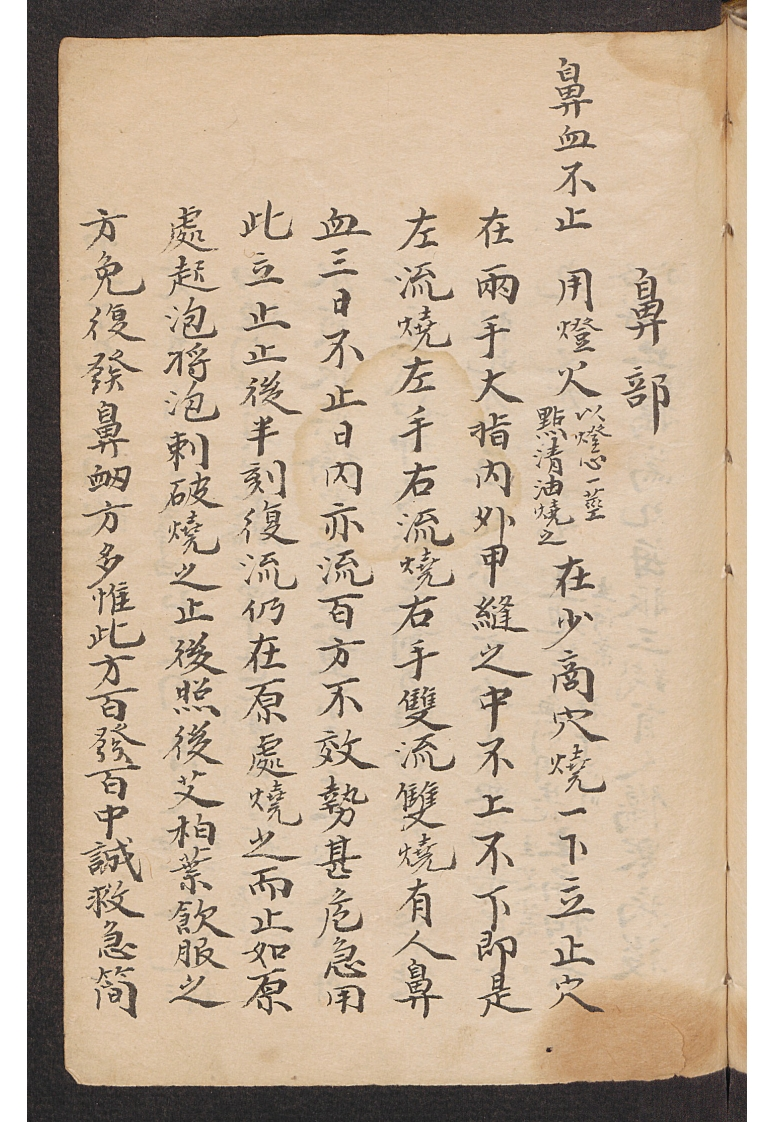 鼻部
鼻血不止 用燈火以燈心一莖點清油燒之在少商穴燒一下立止穴
在兩手大指內外甲縫之中不上不下即是
左流燒左手右流燒右手雙流雙燒有人鼻
血三日不止日內亦流百方不效勢甚危急用
此立止止後半刻復流仍在原處燒之而止如原
處起泡將泡刺破燒之止後照後艾柏葉飲服之
方免復發鼻衄方多惟此方百發百中誠救急簡